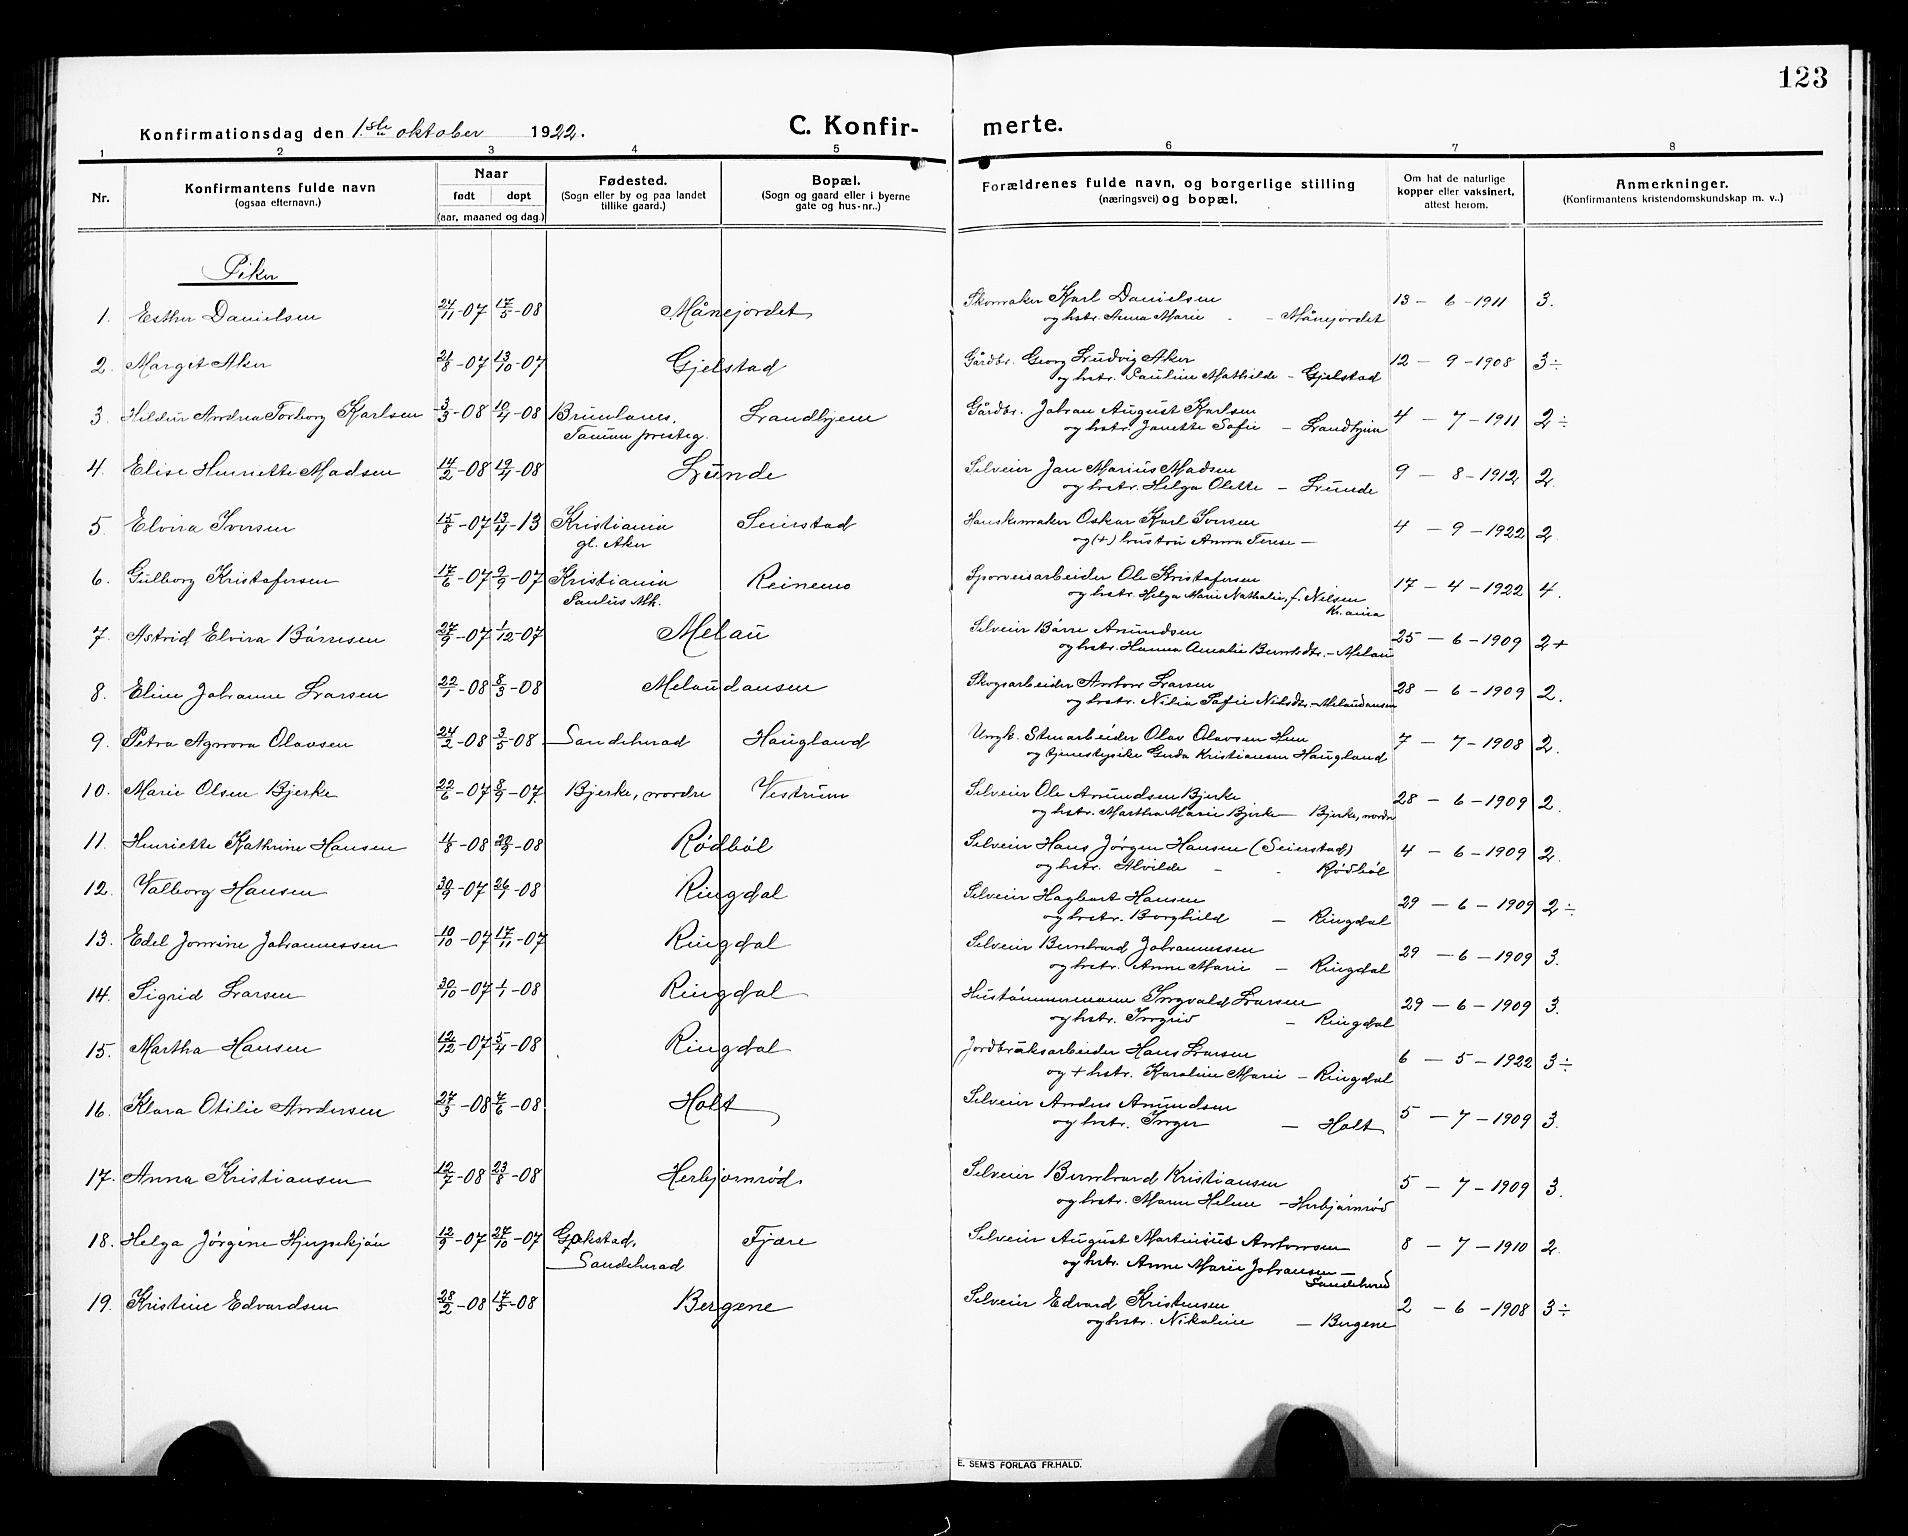 123
Konfirmationsdag den 1ste oktober 1922.
C. Konfirmerte.
1 2 3 4 5 6 7 8
Nr.
Konfirmantens fulde navn
(ogsaa efternavn.)
Naar
født døpt
(aar, maaned og dag.)
Fødested.
(Sogn eller by og paa landet
tillike gaard.)
Bopæl.
(Sogn og gaard eller i byerne
gate og hus-nr..)
Forældrenes fulde navn, og borgerlige stilling
(næringsvei) og bopæl.
Om hat de naturlige
kopper eller vaksinert,
attest herom.
Anmerkninger.
(Konfirmantens kristendomskundskap m. v..)
Piker
1. Esther Danielsen 24/11-07 17/5-08 Månejordet Skomaker Karl Danielsen 13 - 6 - 1911 3.
og hstr. Anna Marie - Månejordet
2. Margit Aker 21/8-07 13/10-07 Gjelstad Gårdbr. Georg Ludvig Aker 12 - 9 - 1908 3÷
og hstr. Pauline Mathilde - Gjelstad
3. Hildur Andrea Torborg Karlsen 3/3-08 19/4-08 Brunlanes, Landhjem Gårdbr. Johan August Karlsen 4 - 7 - 1911 2÷
Tanum presteg. og hstr. Janette Sofie - Landhjem
4. Elise Henriette Madsen 14/2-08 19/4-08 Lunde Selveier Jan Marius Madsen 9 - 8 - 1912 2.
og hstr. Helga Olette - Lunde
5. Elvira Iversen 15/8-07 13/4-13 Kristiania Seierstad Hanskemaker Oskar Karl Iversen 4 - 9 - 1922 2.
gl. Aker og (+) hustru Anna Terese -
6. Gulborg Kristofersen 17/6-07 9/9-07 Kristiania Reinemo Sporveisarbeider Ole Kristofersen 17 - 4 - 1922 4.
Paulus Mh. og hstr. Helga Marie Nathalie, f. Nilsen
Kr.ania
7. Astrid Elvira Børresen 27/9-07 1/12-07 Melau Selveier Børre Amundsen 25 - 6 - 1909 2+
og hstr. Hanna Amalie Berntsdtr. - Melau
8. Eline Johanne Larsen 22/1-08 8/3-08 Melaudansen Skogsarbeider Anton Larsen 28 - 6 - 1909 2.
og hstr. Nilia Sofie Nilsdtr. - Melaudansen
9. Petra Agnora Olavsen 24/2-08 3/5-08 Sandeherad Haugland Ungk. Stenarbeider Olav Olavsen Hem 7 - 7 - 1908 2.
og tjenestepike Guda Kristiansen Haugland
10. Marie Olsen Bjerke 22/6-07 8/9-07. Bjerke, nordre Vestrum Selveier Ole Amundsen Bjerke 28 - 6 - 1909 2.
og hstr. Martha Marie Bjerke - Bjerke, nordre
11. Henriette Kathrine Hansen 4/8-08 20/9-08 Rødbøl Selveier Hans Jørgen Hansen (Seierstad) 4 - 6 - 1909 2.
og hstr. Alvilde - Rødbøl
12. Valborg Hansen 30/9-07 26/1-08 Ringdal Selveier Hagbart Hansen 29 - 6 - 1909 2÷
og hstr. Borghild - Ringdal
13. Edel Jonine Johannessen 10/10-07 17/11-07 Ringdal Selveier Bernhard Johannessen 29 - 6 - 1909 3.
og hstr. Anne Marie - Ringdal
14. Sigrid Larsen 30/10-07 1/1-08 Ringdal Hustømmermann Ingvald Larsen 29 - 6 - 1909 3.
og hstr. Ingrid - Ringdal
15. Martha Hansen 12/12-07 5/4-08 Ringdal Jordbruksarbeider Hans Larsen 6 - 5 - 1922 3÷
og + hstr. Karoline Marie - Ringdal
16. Klara Otilie Andersen 27/3-08 7/6-08 Holt Selveier Anders Amundsen 5 - 7 - 1909 3.
og hstr. Inger - Holt
17. Anna Kristiansen 12/7-08 23/8-08 Herbjørnrød Selveier Bernhard Kristiansen 5 - 7 - 1909 3.
og hstr. Maren Helene - Herbjørnrød
18. Helga Jørgine Hjerpekjøn 12/9-07 27/10-07 Gokstad, Fjære Selveier August Martinius Antonsen 8 - 7 - 1910 2.
Sandeherad og hstr. Anne Marie Johansen -
Sandeherad
19. Kristine Edvardsen 28/2-08 17/5-08 Bergene Selveier Edvard Kristensen 2 - 6 - 1908 3÷
og hstr. Nikoline - Bergene
E. SEM'S FORLAG FR.HALD.